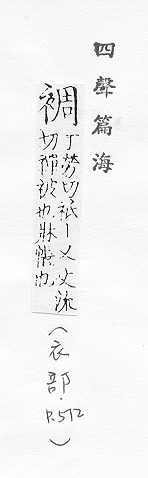 四聲篇海
裯
丁勞切祇丨又丈流
切襌被也牀帳也
(衣部.P.512)